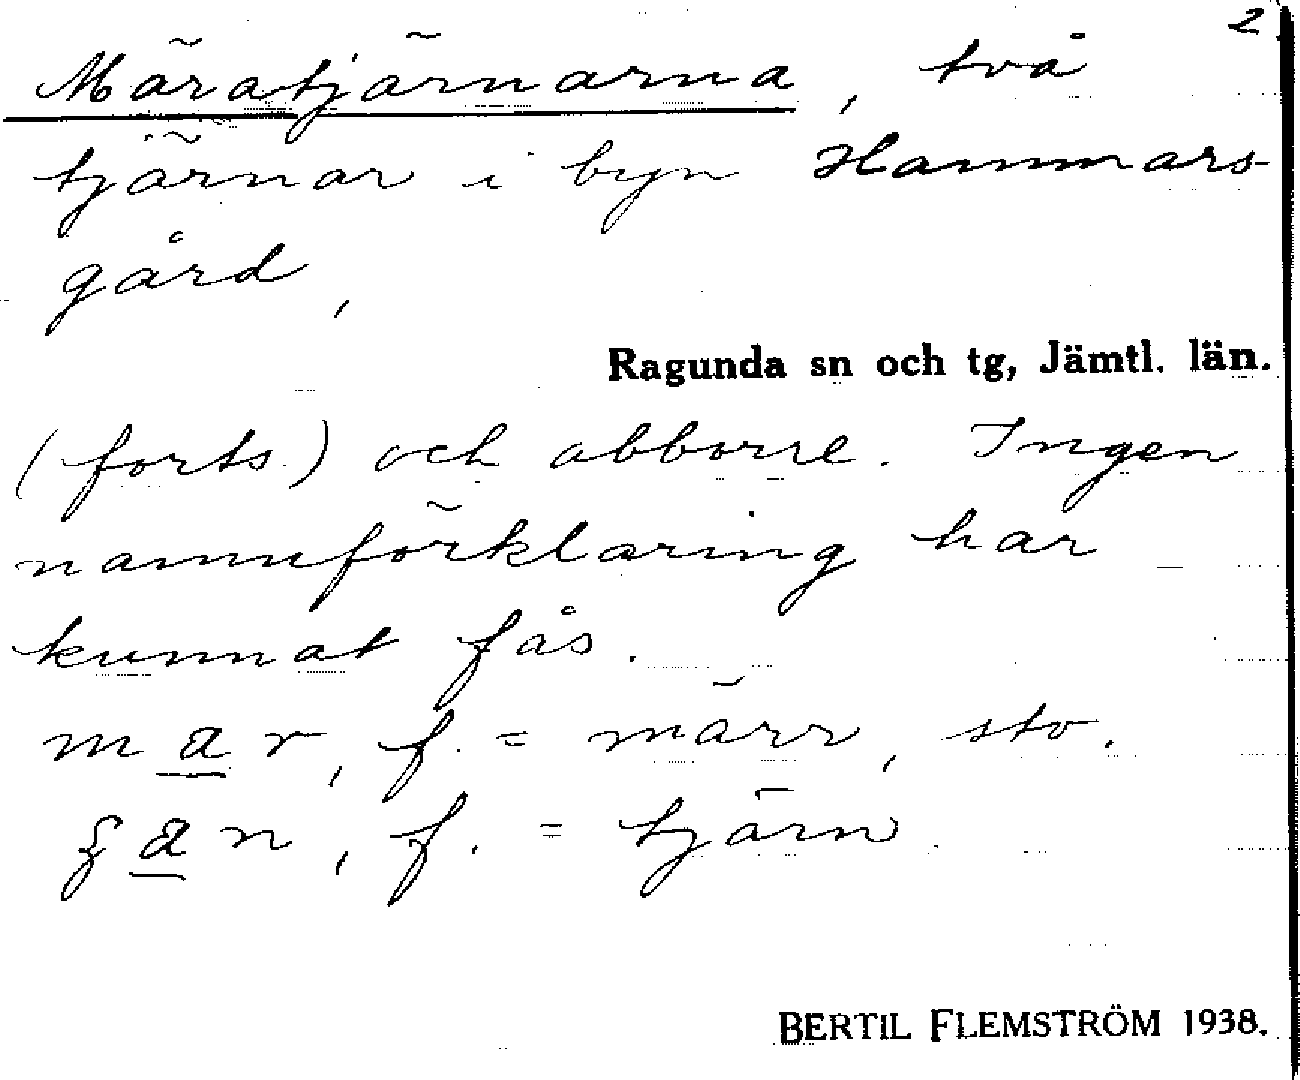 2
Märatjärnarna, två
tjärnar i byn Hammars-
gård,
Ragunda sn och tg, Jämtl. län.
(forts.) och abborre. Ingen
namnförklaring har
kunnat fås.
mar, f. = märr, sto.
ʒan, f. = tjärn
BERTIL FLEMSTRÖM 1938.